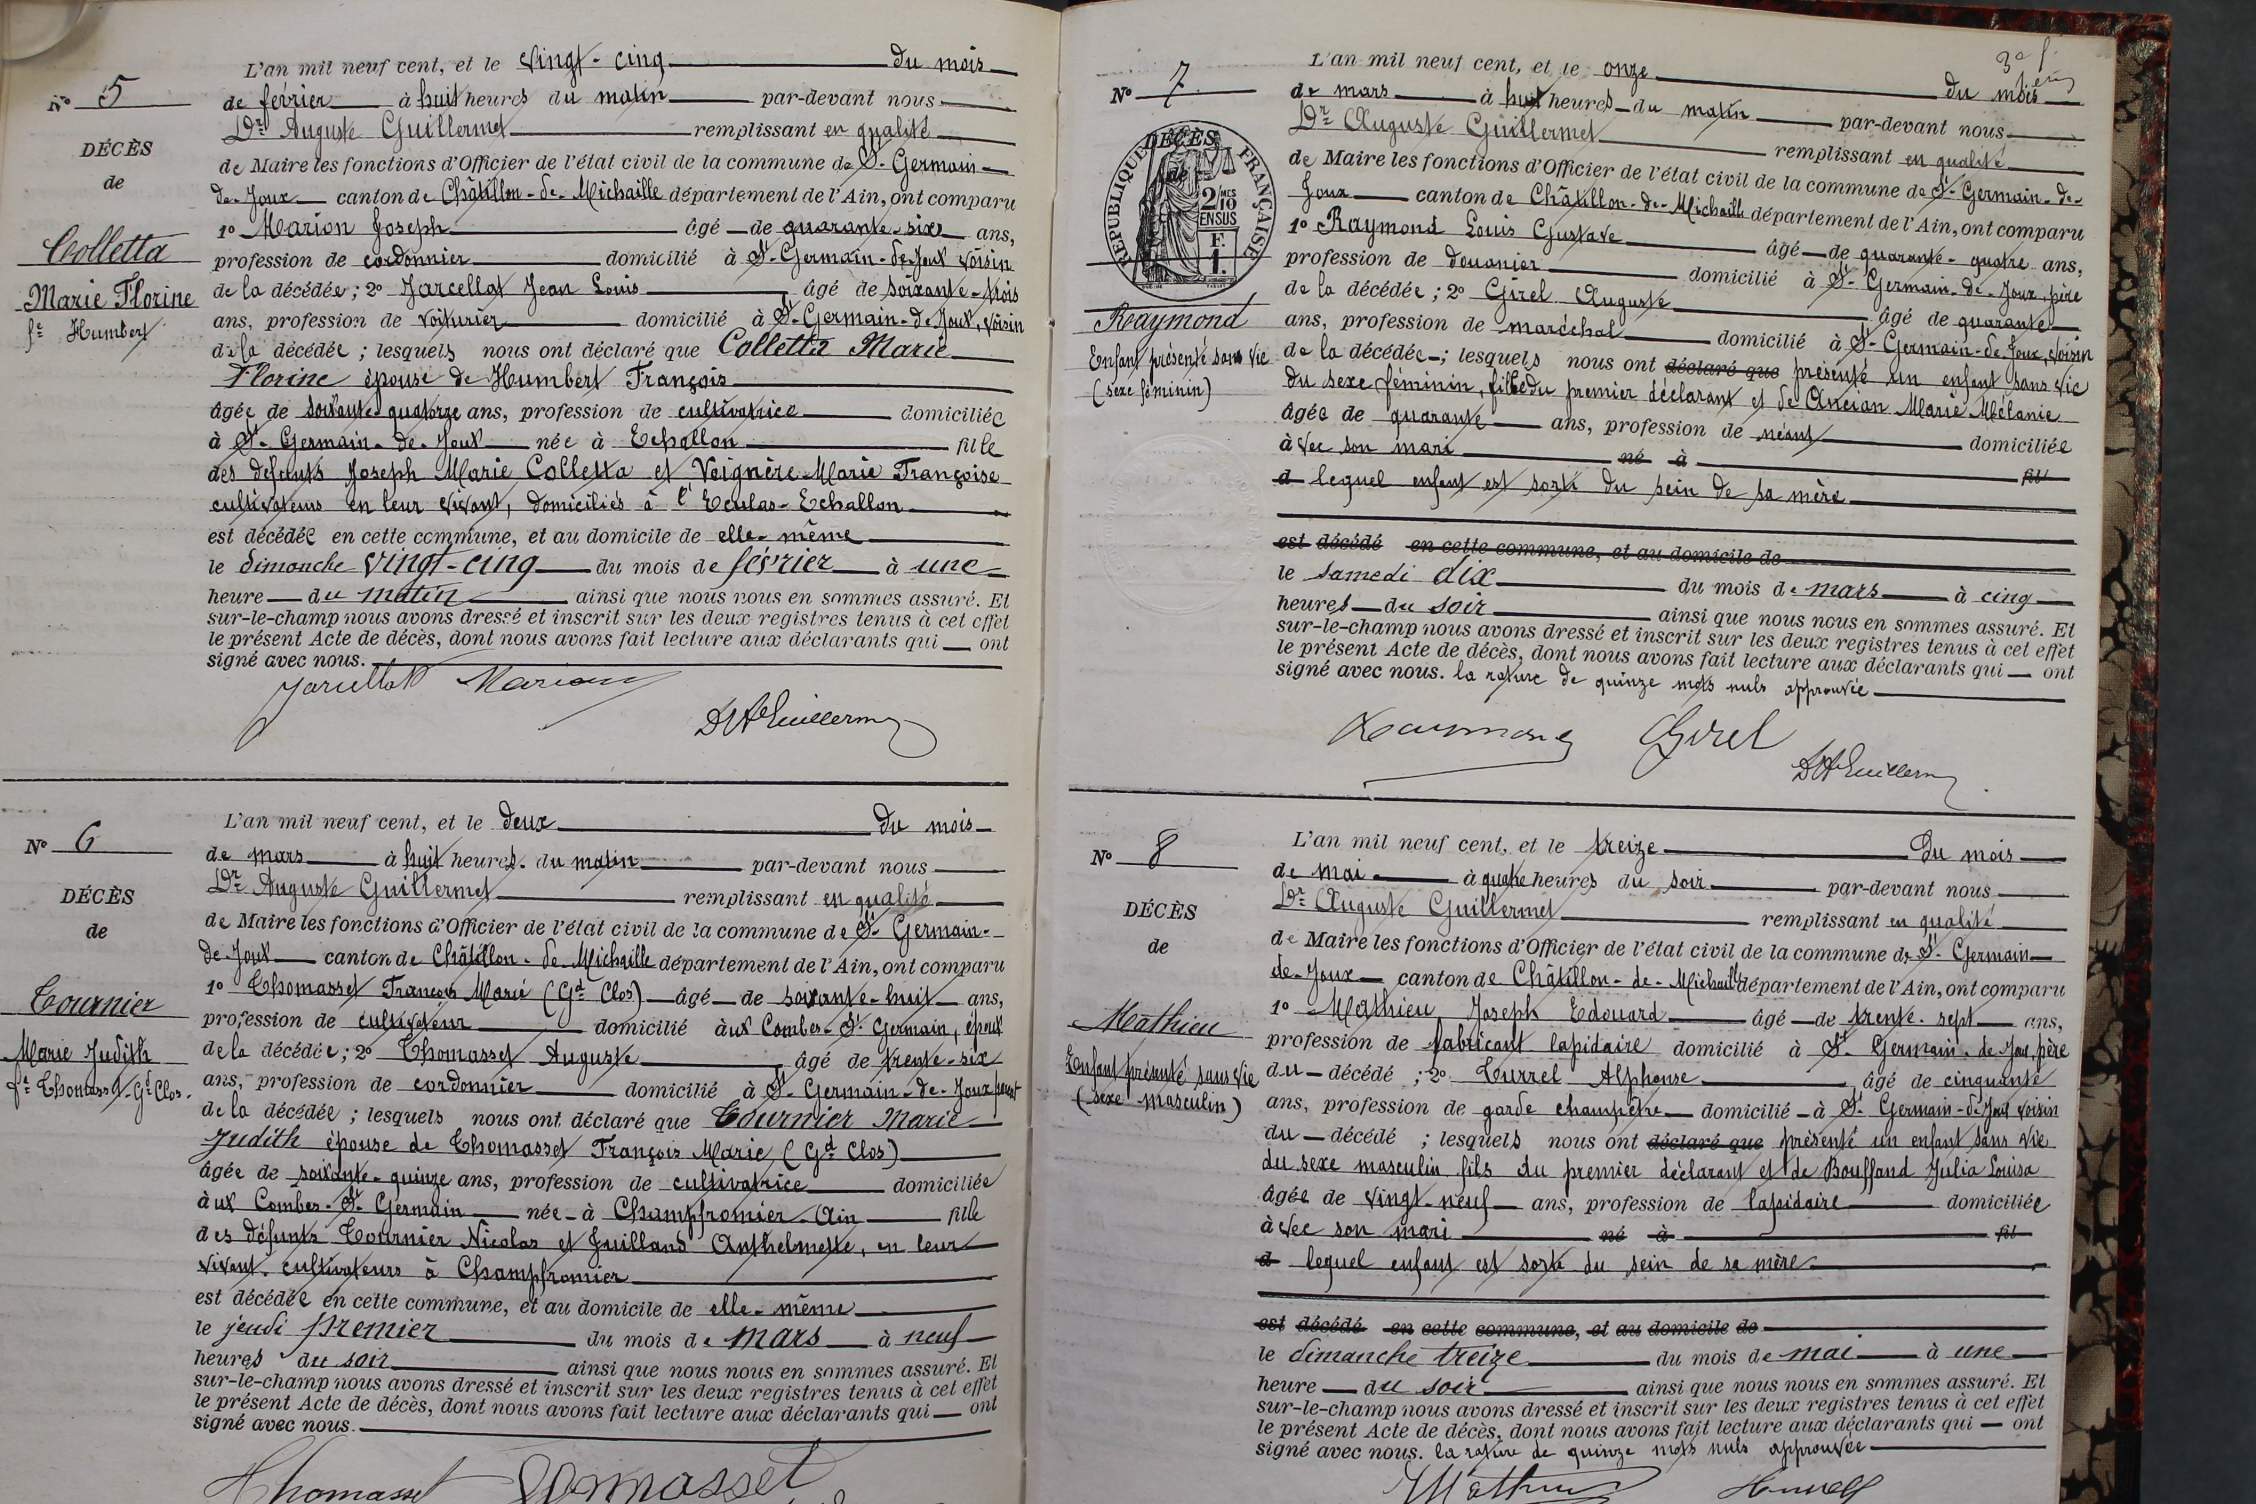 N° 5
DÉCÈS
de
Colletta
Marie Florine
fe Humbert
L'an mil neuf cent, et le vingt-cinq du mois
de février à huit heures du matin par-devant nous
Dr Auguste Guillermet remplissant en qualité
de Maire les fonctions d'Officier de l'état civil de la commune de St-Germain-
de-Joux canton de Châtillon-de-Michaille département de l'Ain, ont comparu
1° Marion Joseph âgé de quarante-six ans,
profession de cordonnier domicilié à St-Germain-de-Joux voisin
de la décédée; 2° Jarcellat Jean Louis âgé de soixante-trois
ans, profession de voiturier domicilié à St-Germain-de-Joux, voisin
de la décédée; lesquels nous ont déclaré que Colletta Marie
Florine épouse de Humbert François
âgée de soixante-quatorze ans, profession de cultivatrice domiciliée
à St-Germain-de-Joux née à Echallon fille
des défunts Joseph Marie Colletta et Veignère Marie Françoise
cultivateurs en leur vivant, domiciliés à l'Eculas-Echallon
est décédée en cette commune, et au domicile de elle-même
le dimanche vingt-cinq du mois de février à une
heure du matin ainsi que nous nous en sommes assuré. Et
sur-le-champ nous avons dressé et inscrit sur les deux registres tenus à cet effet
le présent Acte de décès, dont nous avons fait lecture aux déclarants qui ont
signé avec nous.
Marion
Dr Ate Guillermet
N° 6
DÉCÈS
de
Tournier
Marie Judith
fe Thomasset-Gd Clos.
L'an mil neuf cent, et le deux du mois
de mars à huit heures du matin par-devant nous
Dr Auguste Guillermet remplissant en qualité
de Maire les fonctions d'Officier de l'état civil de la commune de St-Germain-
de-Joux canton de Châtillon-de-Michaille département de l'Ain, ont comparu
1° Thomasset François Marie (Gd Clos) âgé de soixante-huit ans,
profession de cultivateur domicilié aux Combes-St Germain, époux
de la décédée; 2° Thomasset Auguste âgé de trente-six
ans, profession de cordonnier domicilié à St-Germain-de-Joux parent
de la décédée; lesquels nous ont déclaré que Tournier Marie
Judith épouse de Thomasset François Marie (Gd Clos)
âgée de soixante-quinze ans, profession de cultivatrice domiciliée
aux Combes-St-Germain née à Champfromier-Ain fille
des défunts Tournier Nicolas et Juilland Anthelmette, en leur
vivant cultivateurs à Champfromier
est décédée en cette commune, et au domicile de elle-même
le jeudi premier du mois de mars à neuf
heures du soir ainsi que nous nous en sommes assuré. Et
sur-le-champ nous avons dressé et inscrit sur les deux registres tenus à cet effet
le présent Acte de décès, dont nous avons fait lecture aux déclarants qui ont
signé avec nous.
Thomasset Thomasset
3e f
N° 7
DÉCÈS
de
RÉPUBLIQUE FRANÇAISE
2 MES
10
EN SUS
F.
1.
Raymond
Enfant présenté sans vie
(sexe féminin)
L'an mil neuf cent, et le onze du mois
de mars à huit heures du matin par-devant nous
Dr Auguste Guillermet remplissant en qualité
de Maire les fonctions d'Officier de l'état civil de la commune de St-Germain-de-
Joux canton de Châtillon-de-Michaille département de l'Ain, ont comparu
1° Raymond Louis Gustave âgé de quarante-quatre ans,
profession de douanier domicilié à St-Germain-de-Joux, père
de la décédée; 2° Girel Auguste âgé de quarante
ans, profession de maréchal domicilié à St-Germain-de-Joux, voisin
de la décédée; lesquels nous ont déclaré que présenté un enfant sans vie
du sexe féminin, fille du premier déclarant et de Ancian Marie Mélanie
âgée de quarante ans, profession de néant domiciliée
avec son mari né à fil
d lequel enfant est sorti du sein de sa mère
est décédé en cette commune, et au domicile de
le samedi dix du mois de mars à cinq
heures du soir ainsi que nous nous en sommes assuré. Et
sur-le-champ nous avons dressé et inscrit sur les deux registres tenus à cet effet
le présent Acte de décès, dont nous avons fait lecture aux déclarants qui ont
signé avec nous. la rature de quinze mots nuls approuvée
Raymond Girel
Dr Ate Guillermet
N° 8
DÉCÈS
de
Mathieu
Enfant présenté sans vie
(sexe masculin)
L'an mil neuf cent, et le treize du mois
de mai à quatre heures du soir par-devant nous
Dr Auguste Guillermet remplissant en qualité
de Maire les fonctions d'Officier de l'état civil de la commune de St-Germain
de-Joux canton de Châtillon-de-Michaille département de l'Ain, ont comparu
1° Mathieu Joseph Edouard âgé de trente-sept ans,
profession de fabricant lapidaire domicilié à St-Germain-de-Joux, père
du décédé; 2° Turrel Alphonse âgé de cinquante
ans, profession de garde champêtre domicilié à St Germain-de-Joux voisin
du décédé; lesquels nous ont déclaré que présenté un enfant sans vie
du sexe masculin fils du premier déclarant et de Bouffand Julia Louisa
âgée de vingt-neuf ans, profession de lapidaire domiciliée
avec son mari né à fil
d lequel enfant est sorti du sein de sa mère
est décédé en cette commune, et au domicile de
le dimanche treize du mois de mai à une
heure du soir ainsi que nous nous en sommes assuré. Et
sur-le-champ nous avons dressé et inscrit sur les deux registres tenus à cet effet
le présent Acte de décès, dont nous avons fait lecture aux déclarants qui ont
signé avec nous. la rature de quinze mots nuls approuvée
Mathieu